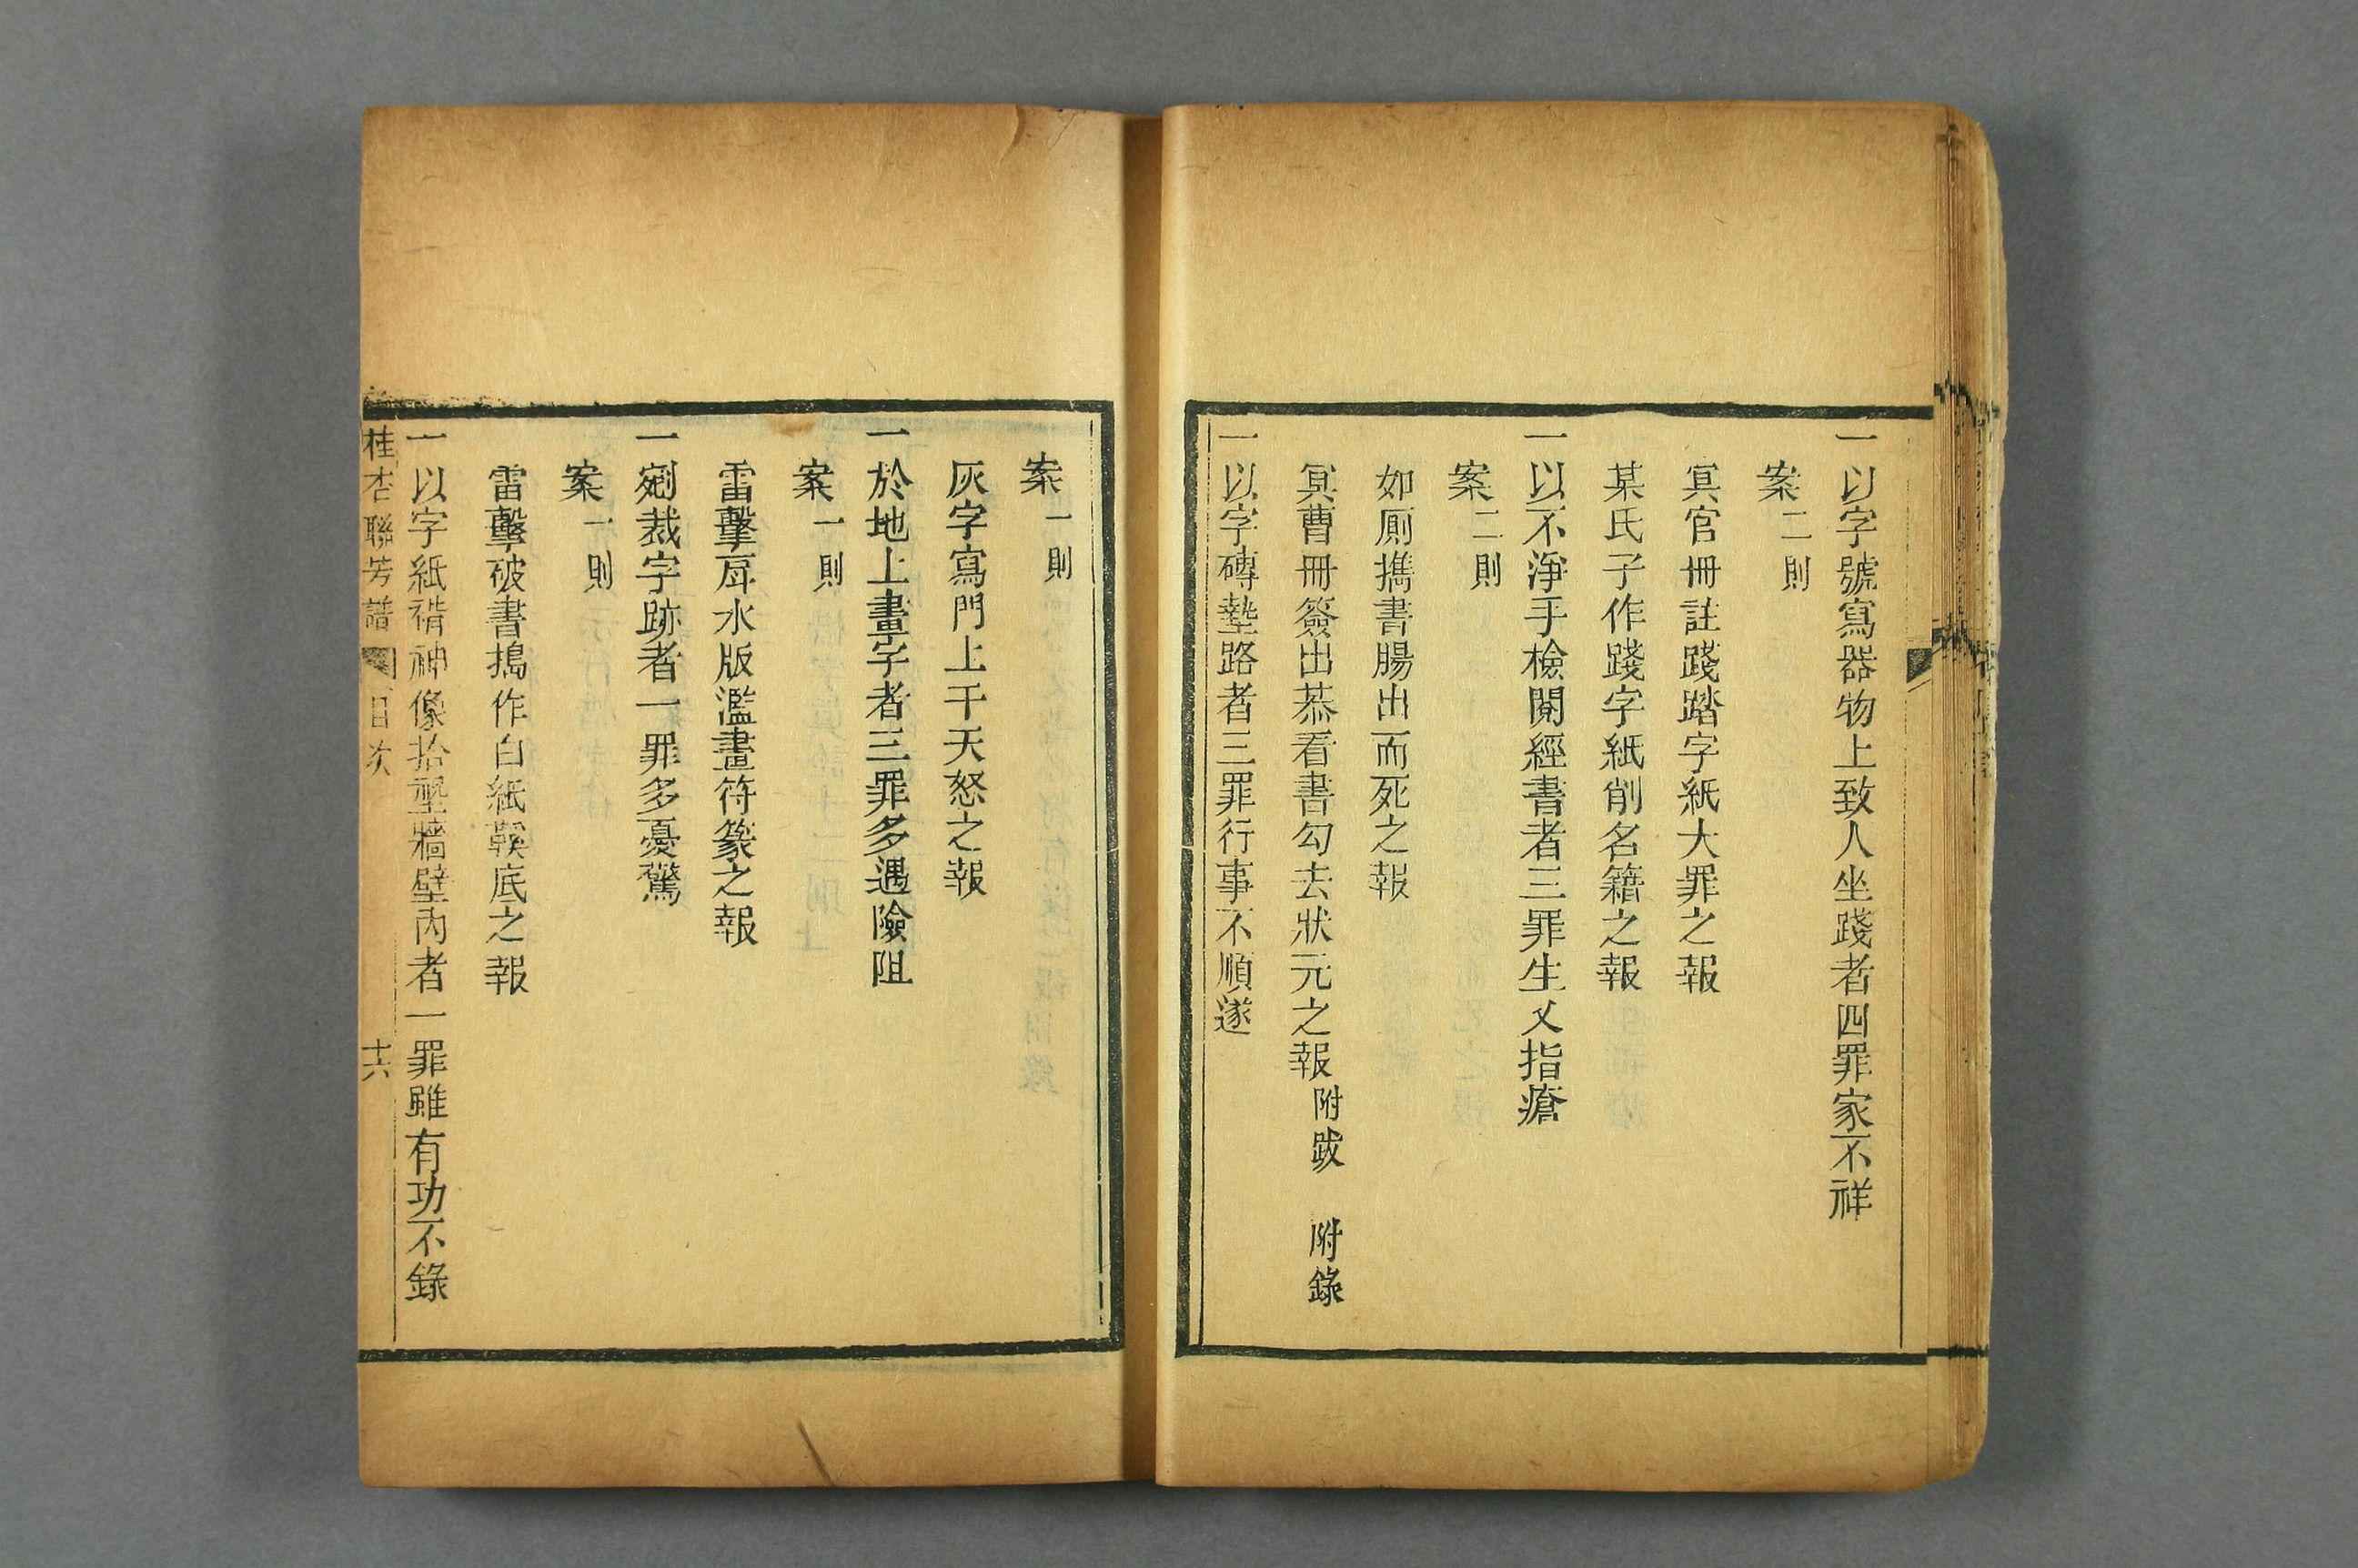 一以字號寫器物上致人坐踐者四罪家不祥
案二則
冥官冊註踐踏字紙大罪之報
某氏子作踐字紙削名籍之報
一以不淨手檢閱經書者三罪生义指瘡
案二則
如厠攜書腸出而死之報
冥曹冊簽出恭看書勾去狀元之報附跋 附錄
一以字磚墊路者三罪行事不順遂
案一則
灰字寫門上干天怒之報
一於地上畫字者三罪多遇險阻
案一則
雷擊戽水版濫畫符篆之報
一剜裁字跡者一罪多憂驚
案一則
雷擊破書搗作白紙鞵底之報
一以字紙褙神像拾塑牆壁內者一罪雖有功不錄
桂杏聯芳譜 目次 十六